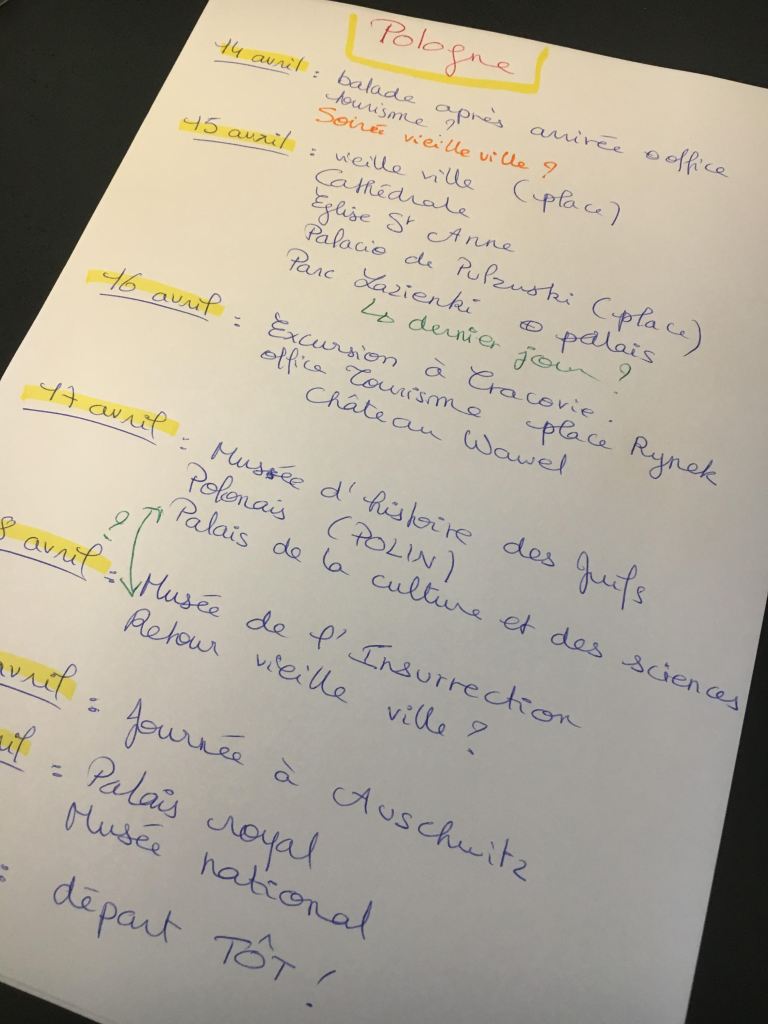 Pologne
14 avril : balade après arrivée office
tourisme ?
Soirée vieille ville ?
15 avril : vieille ville (place)
Cathédrale
Église St Anne
Palacio de Pulzuski (place)
Parc Lazienki ⊕ palais
↳ dernier jour ?
16 avril : Excursion à Cracovie.
office Tourisme place Rynek
Château Wawel
17 avril : Musée d'histoire des Juifs
Polonais (POLIN)
Palais de la culture et des sciences
?
8 avril : Musée de l'Insurrection
Retour vieille ville ?
avril : Journée à Auschwitz
il : Palais royal
Musée national
: départ TÔT !